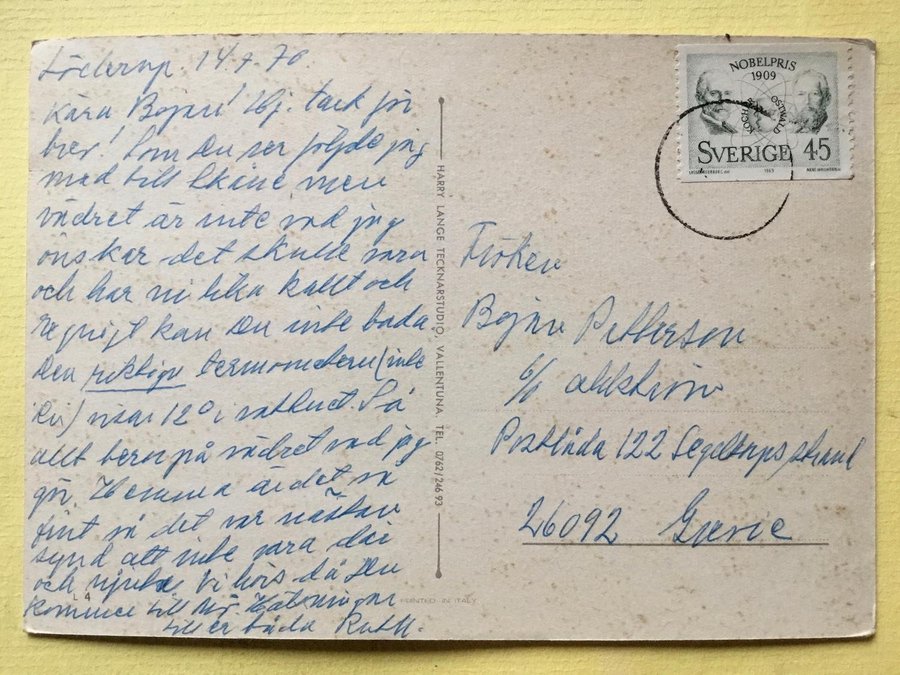 Löderup 14.7.70
Kära Bojan! Hj. tack för
brev! Som Du ser följde jag
med till Skåne men
vädret är inte vad jag
önskar det skulle vara
och har ni lika kallt och
regnigt kan Du inte bada.
Den riktiga termometern (inte
) visar 12° i vattnet. Så
allt beror på vädret vad jag
gör. Hemma är det så
fint så det var nästan
synd att inte vara där
och njuta. Vi hörs då Du
kommer till Hälsningar
till er båda Ruth.
L 4
HARRY LANGE TECKNARSTUDIO, VALLENTUNA. TEL. 0762/246 93
PRINTED IN ITALY
NOBELPRIS
1909
KOCHER
OSTWALD
SVERIGE 45
1969
Fröken
Pettersson
c/o
Postlåda 122 Segeltorps strand
26092